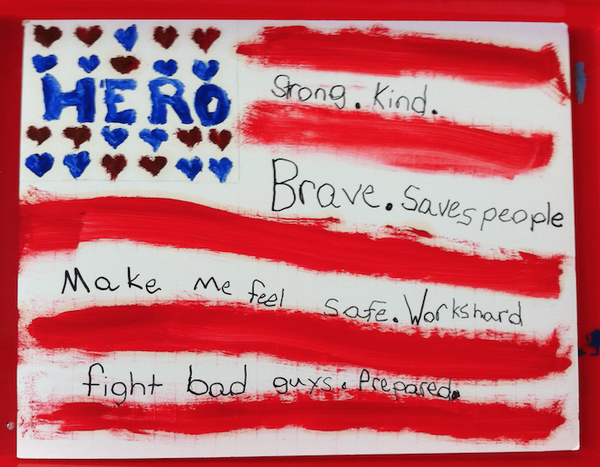 HERO
Strong. Kind.
Brave. Saves people
Make me feel safe. Works hard
fight bad guys. Prepared.